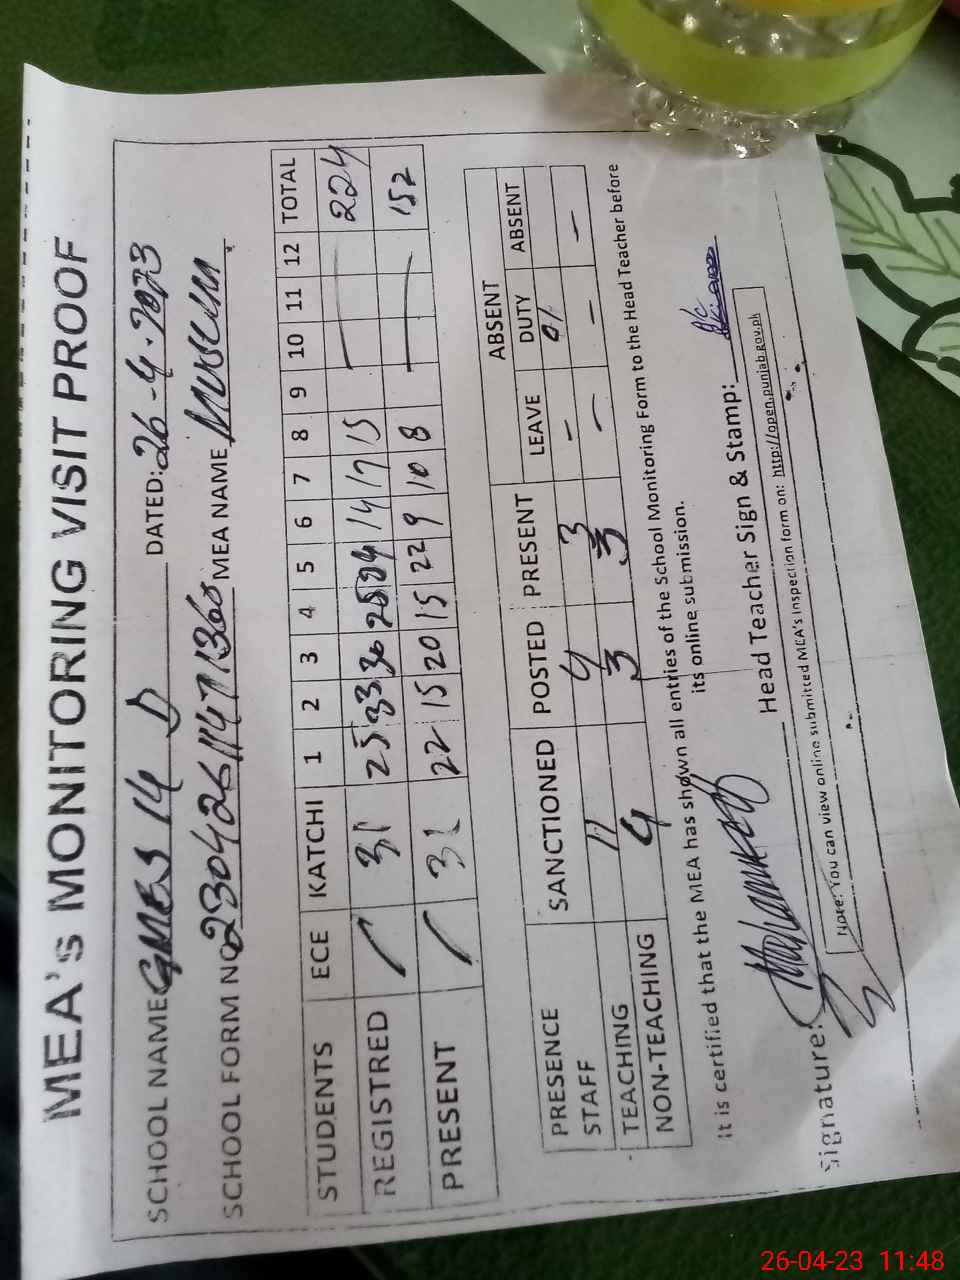 MEA's MONITORING VISIT PROOF
SCHOOL NAME GMES 14 D DATED: 26-4-2023
SCHOOL FORM NO 23042611471360 MEA NAME
STUDENTS ECE KATCHI 1 2 3 4 5 6 7 8 9 10 11 12 TOTAL
REGISTRED / 31 25 33 36 28 24 14 17 15 224
PRESENT / 31 22 15 20 15 22 9 10 8 152
PRESENCE STAFF SANCTIONED POSTED PRESENT ABSENT
LEAVE DUTY ABSENT
TEACHING 11 4 3 - 01 -
NON-TEACHING 4 3 3 - - -
It is certified that the MEA has shown all entries of the School Monitoring Form to the Head Teacher before
its online submission.
Signature: Head Teacher Sign & Stamp:
Note: You can view online submitted MEA's inspection form on: http://open.punjab.gov.pk
26-04-23 11:48